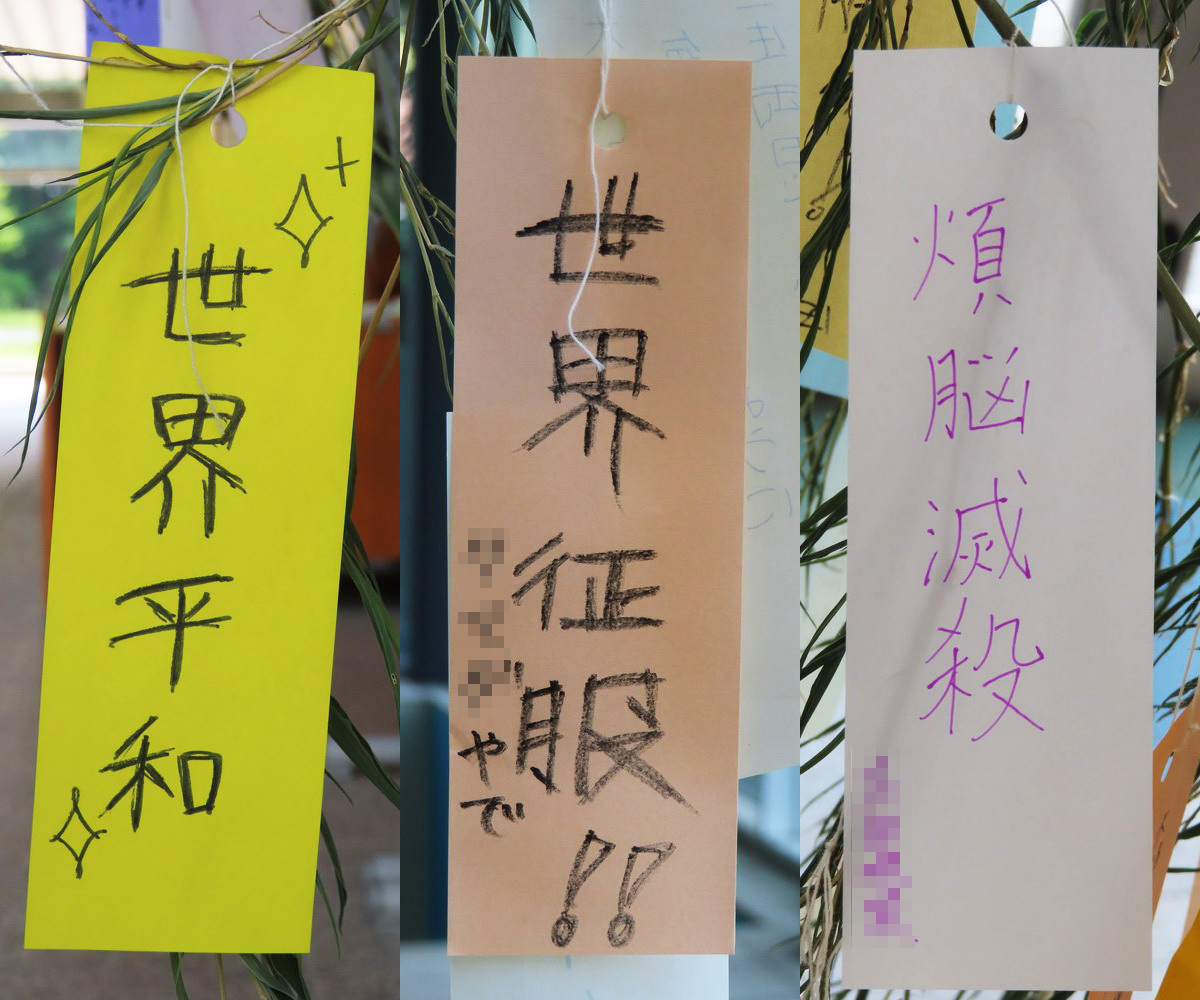 世界平和
世界征服!!
やで
煩脳滅殺